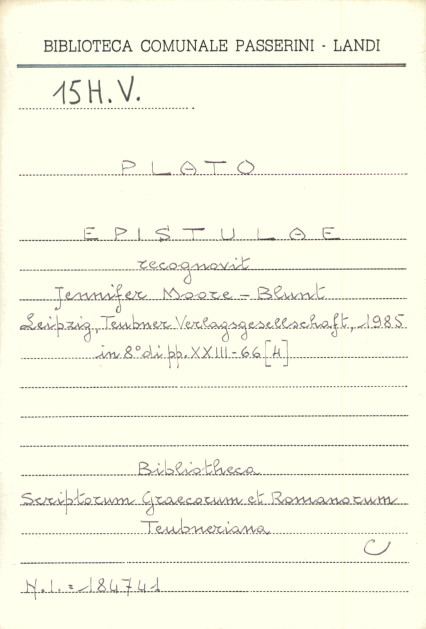 BIBLIOTECA COMUNALE PASSERINI - LANDI
15 H. V.
PLATO
EPISTULAE
recognovit
Jennifer Moore - Blunt
Leipzig, Teubner Verlagsgesellschaft, 1985
in 8° di pp. XXIII-66 [4]
Bibliotheca
Scriptorum Graecorum et Romanorum
Teubneriana
C
N.I. = 184741